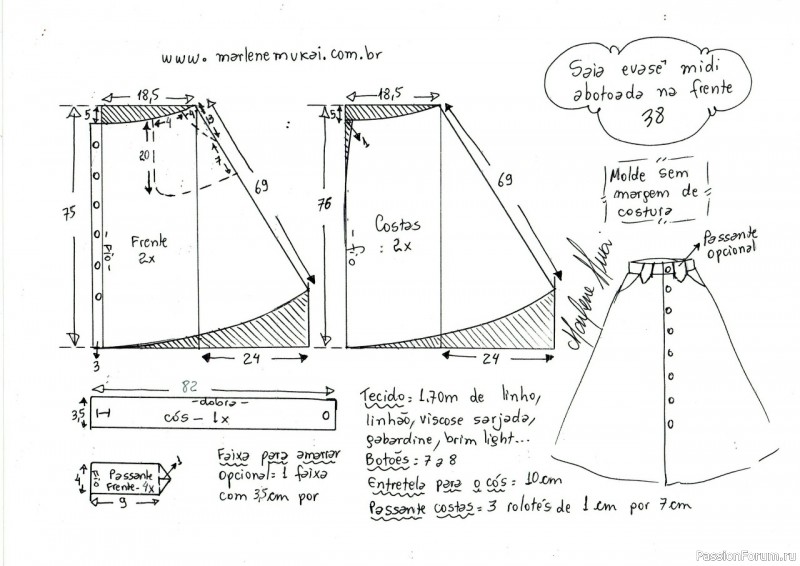 www.marlenemukai.com.br
Saia evasê midi
abotoada na frente
38
18,5
5
4
4
3
7
20
69
75
Fio
Frente
2x
3
24
18,5
5
1
69
76
Fio
Costas
: 2x
24
Molde sem
margem de
costura
Marlene Mukai
Passante
opcional
82
3,5
-dobra-
cós - 1x
1
4
Fio
Passante
Frente-4x
9
Faixa para amarrar
opcional= 1 faixa
com 3,5cm por
Tecido= 1,70m de linho,
linhão, viscose sarjada,
gabardine, brim light...
Botões = 7 a 8
Entretela para o cós = 10cm
Passante costas= 3 rolotés de 1cm por 7cm
PassionForum.ru